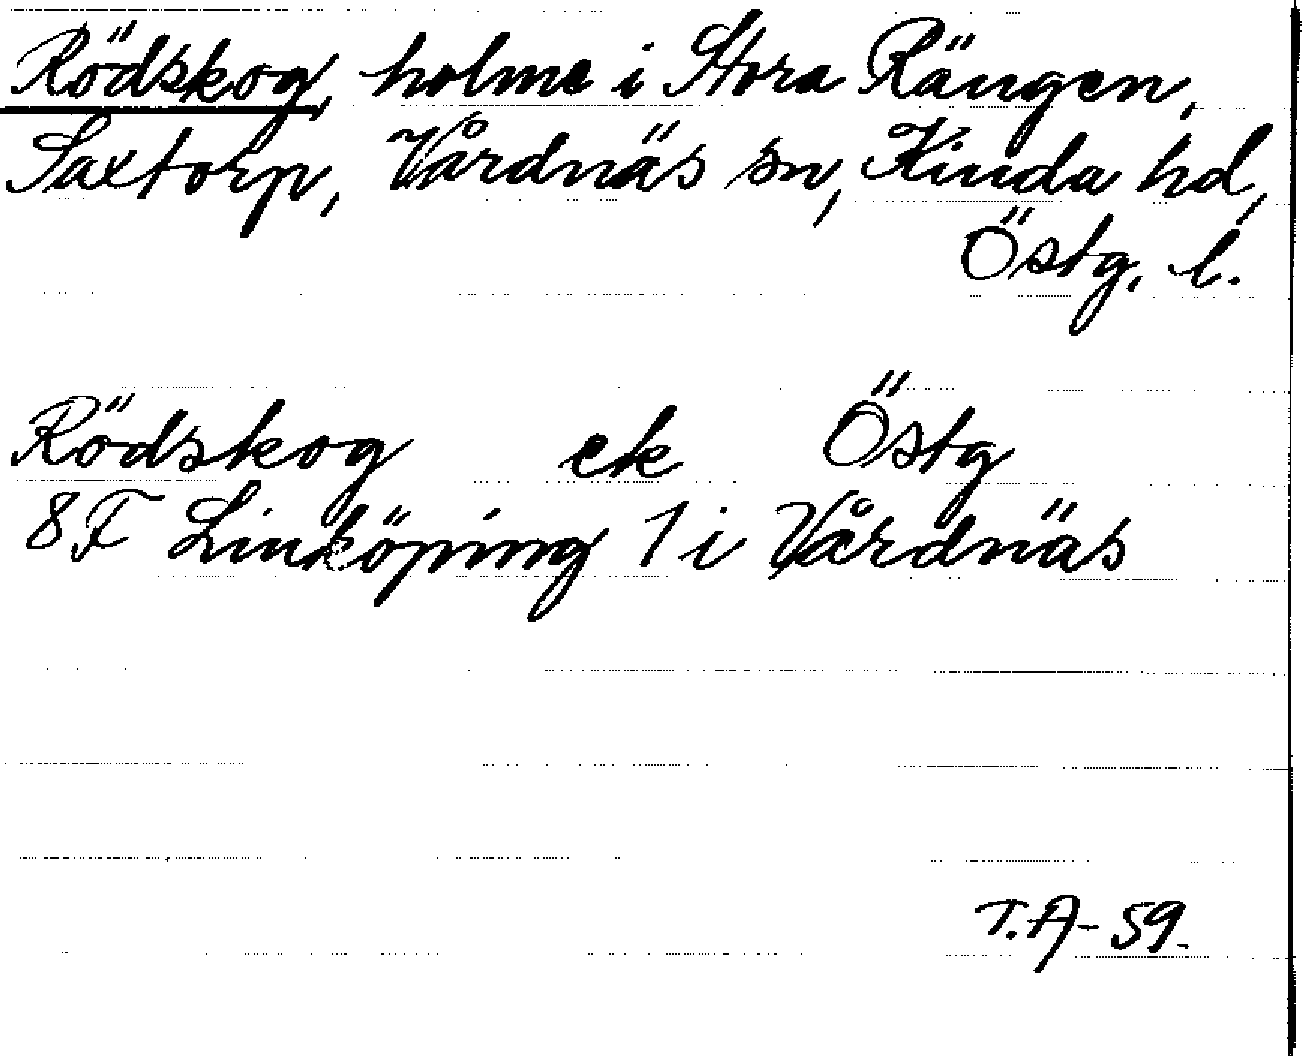 Rödskog, holme i Stora Rängen,
Saxtorp, Vårdnäs sn, Kinda hd,
Östg. l.
Rödskog ek Östg
8F Linköping 1 i Vårdnäs
T.A-59.